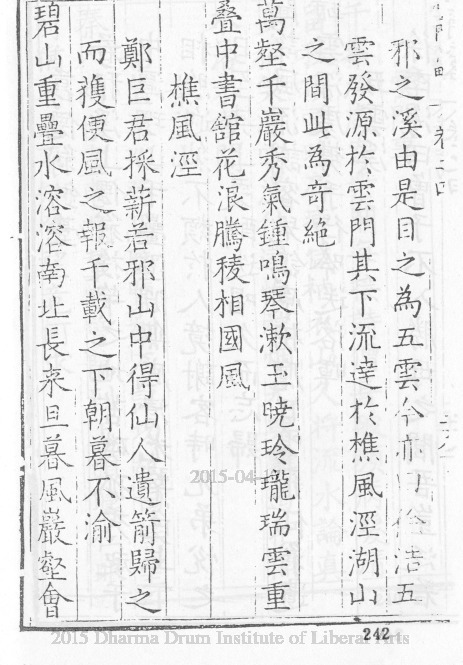 卷二四
邪之溪由是目之為五雲今亦曰 五
雲發源於雲門其下流達於樵風涇湖山
之間此為奇絶
萬壑千巖秀氣鍾鳴琴漱玉曉玲瓏瑞雲重
疊中書舘花浪騰稜相國風
樵風涇
鄭巨君採薪若邪山中得仙人遺箭歸之
而獲便風之報千載之下朝暮不渝
碧山重疊水溶溶南北長来旦暮風巖壑會
242
2015-04
2015 Dharma Drum Institute of Liberal Arts